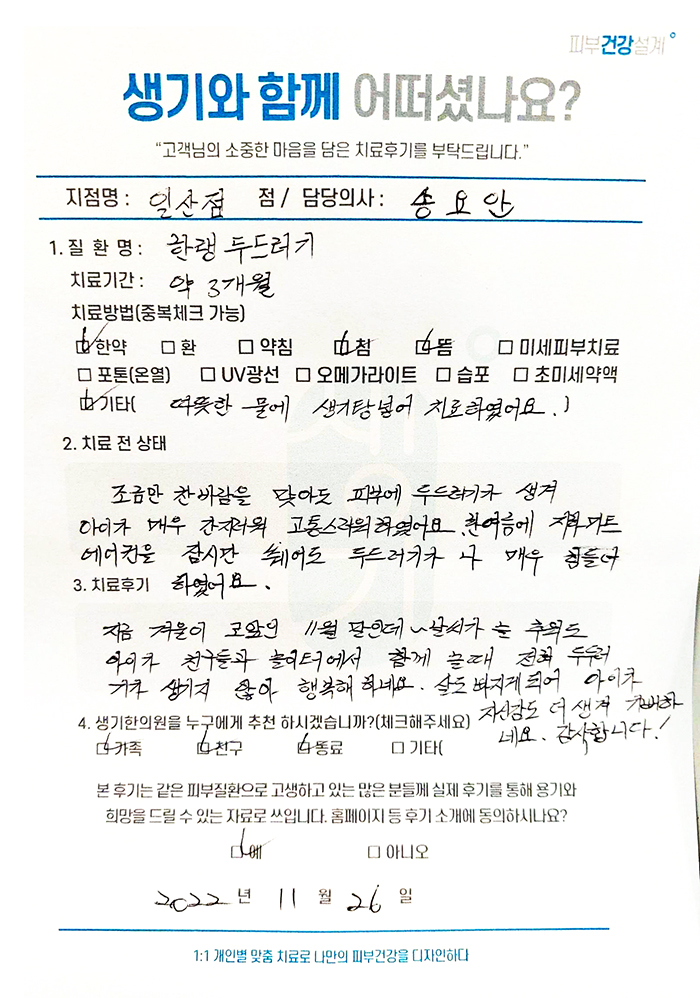 피부건강설계
생기와 함께 어떠셨나요?
“고객님의 소중한 마음을 담은 치료후기를 부탁드립니다.”
지점명 : 일산점 점 / 담당의사 : 송요안
1. 질 환 명 : 한랭 두드러기
치료기간 : 약 3개월
치료방법(중복체크 가능)
한약 □ 환 □ 약침 침 뜸 □ 미세피부치료
□ 포톤(온열) □ UV광선 □ 오메가라이트 □ 습포 □ 초미세약액
기타( 따뜻한 물에 생기탕 넣어 치료하였어요. )
2. 치료 전 상태
조금만 찬바람을 맞아도 피부에 두드러기가 생겨
아이가 매우 간지러워 고통스러워하였어요. 한여름에
에어컨을 잠시간 쐐어도 두드러기가 나 매우 힘들어
3. 치료후기 하였어요.
지금 겨울이 코앞인 11월 말인데~ 날씨가 늘 추워도
아이가 친구들과 놀이터에서 함께 놀때 전혀 두드러
기가 생기지 않아 행복해 하네요. 살도 빠지게되어 아이가
자신감도 더 생겨 기뻐하
네요. 감사합니다!
4. 생기한의원을 누구에게 추천 하시겠습니까?(체크해주세요)
가족 친구 동료 □ 기타(
본 후기는 같은 피부질환으로 고생하고 있는 많은 분들께 실제 후기를 통해 용기와
희망을 드릴 수 있는 자료로 쓰입니다. 홈페이지 등 후기 소개에 동의하시나요?
예 □ 아니오
2022 년 11 월 26 일
1:1 개인별 맞춤 치료로 나만의 피부건강을 디자인하다